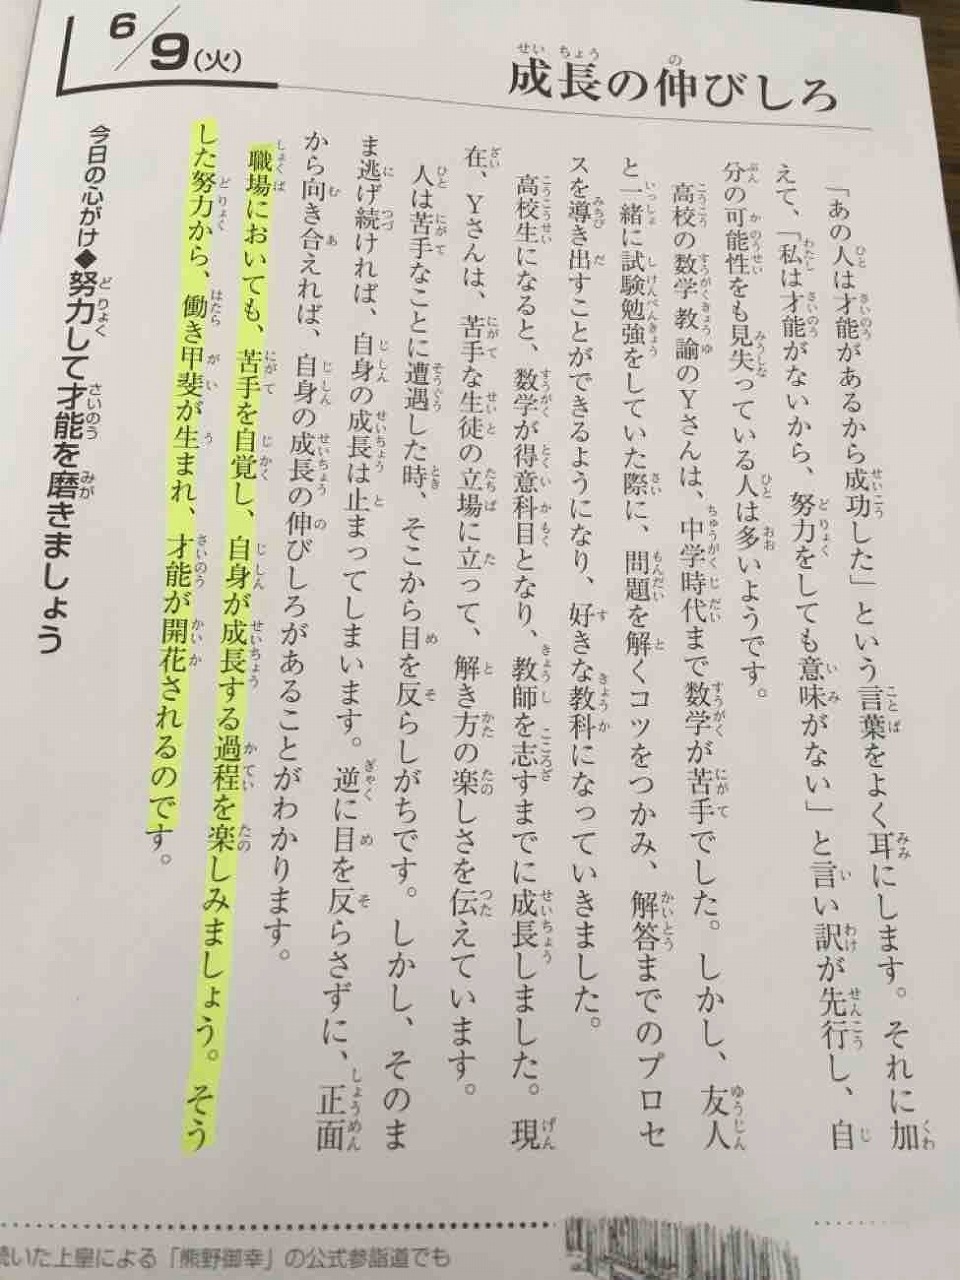 6/9(火)
成長の伸びしろ
「あの人は才能があるから成功した」という言葉をよく耳にします。それに加
えて、「私は才能がないから、努力をしても意味がない」と言い訳が先行し、自
分の可能性をも見失っている人は多いようです。
高校の数学教諭のYさんは、中学時代まで数学が苦手でした。しかし、友人
と一緒に試験勉強をしていた際に、問題を解くコツをつかみ、解答までのプロセ
スを導き出すことができるようになり、好きな教科になっていきました。
高校生になると、数学が得意科目となり、教師を志すまでに成長しました。現
在、Yさんは、苦手な生徒の立場に立って、解き方の楽しさを伝えています。
人は苦手なことに遭遇した時、そこから目を反らしがちです。しかし、そのま
ま逃げ続ければ、自身の成長は止まってしまいます。逆に目を反らさずに、正面
から向き合えれば、自身の成長の伸びしろがあることがわかります。
職場においても、苦手を自覚し、自身が成長する過程を楽しみましょう。そう
した努力から、働き甲斐が生まれ、才能が開花されるのです。
今日の心がけ◆努力して才能を磨きましょう
いた上皇による「熊野御幸」の公式参詣道でも